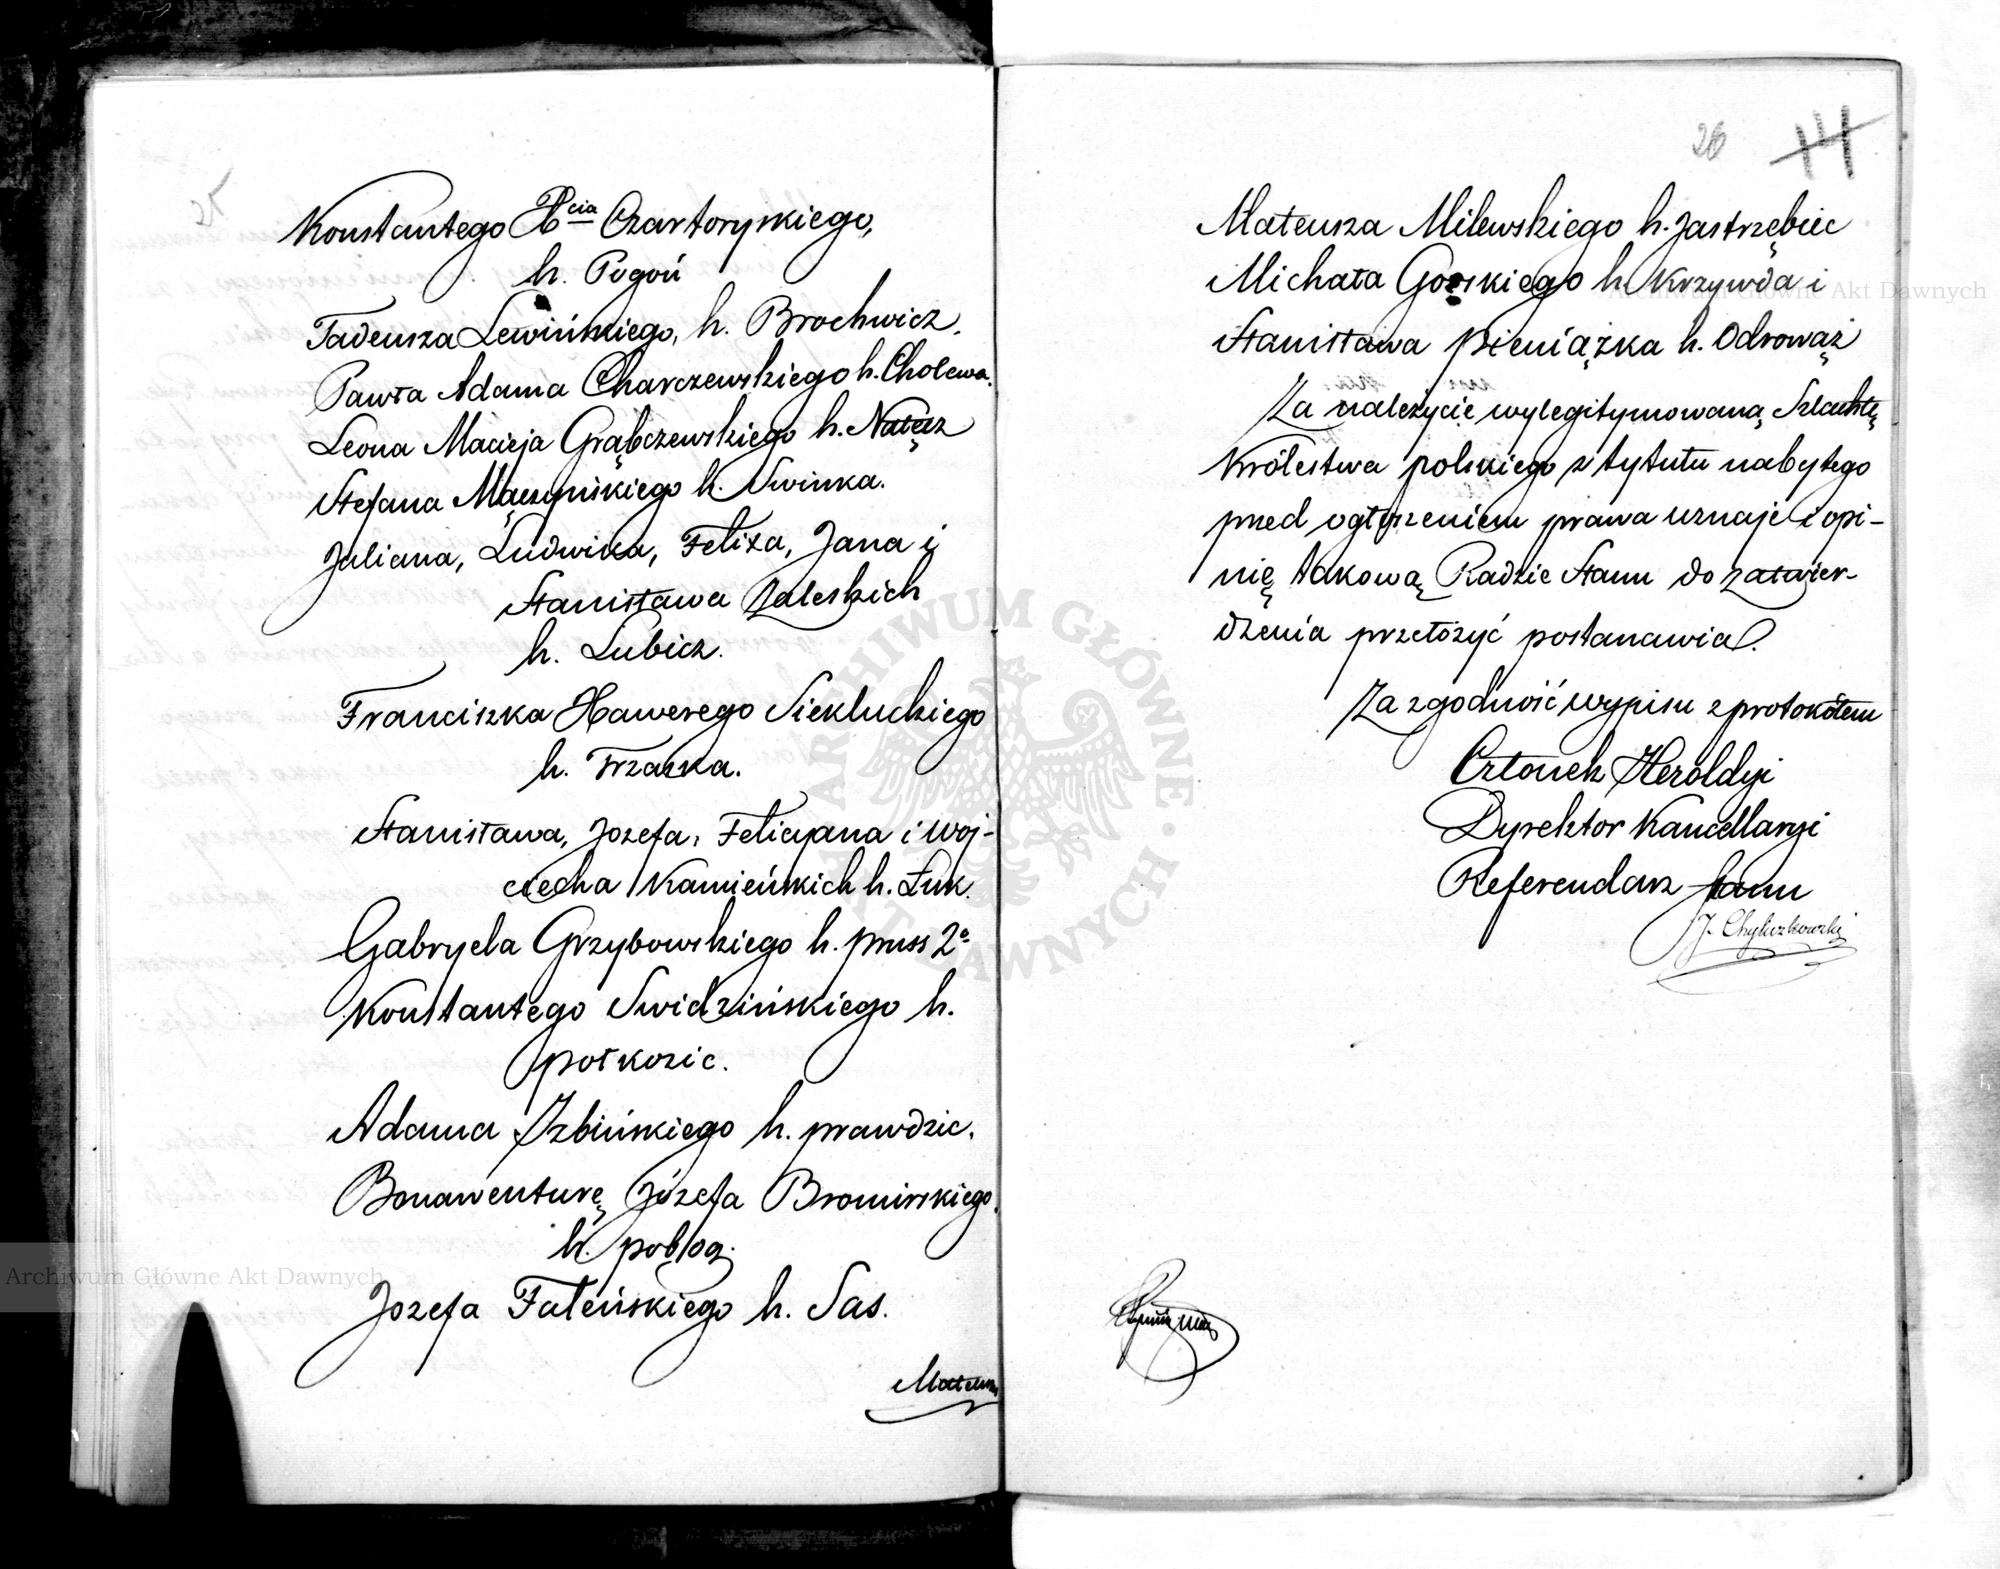 25
Konstantego Xcia Czartoryskiego,
h. Pogoń
Tadeusza Lewińskiego, h. Brochwicz.
Pawła Adama Charczewskiego h. Cholewa.
Leona Macieja Grąbczewskiego h. Nałęcz
Stefana Mączyńskiego h. Swinka.
Juliana, Ludwika, Felixa, Jana i
Stanisława Zaleskich
h. Lubicz.
Franciszka Xawerego Siekluckiego
h. Trzaska.
Stanisława, Jozefa, Felicyana i Woj-
ciecha Kamieńskich h. Łuk.
Gabryela Grzybowskiego h. pruss 2º
Konstantego Swidzińskiego h.
połkozic.
Adama Izbińskiego h. prawdzic.
Bonawenturę Józefa Bromirskiego.
h. pobog.
Jozefa Faleńskiego h. Sas.
Mateusza
26
Mateusza Milewskiego h. Jastrzębiec
Michała Gorskiego h. Krzywda i
Stanisława Pieniążka h. Odrowąż
Za należycie wylegitymowaną Szlachtę
Królestwa polskiego z tytułu nabytego
przed ogłoszeniem prawa uznaje i opi-
nię takową Radzie Stanu do zatwier-
dzenia przełożyć postanawia.
Za zgodność wypisu z protokółem
Członek Heroldyi
Dyrektor Kancellaryi
Referendarz Stanu
J. Chyliczkowski
ARCHIWUM GŁÓWNE AKT DAWNYCH
Archiwum Główne Akt Dawnych
Archiwum Główne Akt Dawnych